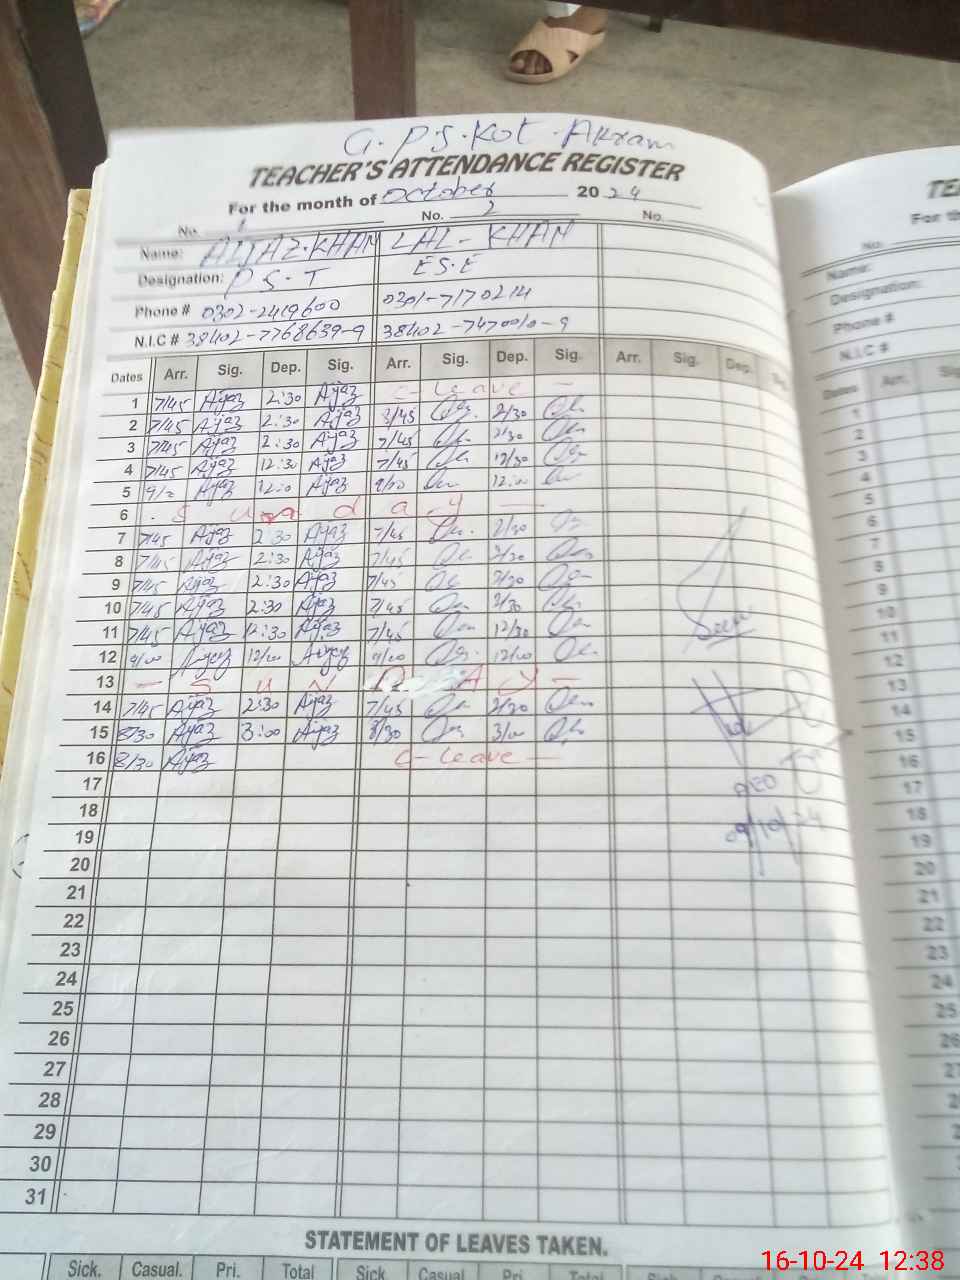 G.P.S.Kot.Akram
TEACHER'S ATTENDANCE REGISTER
For the month of October 2024
No. 1 No. 2 No.
Name: AIJAZ.KHAN LAL-KHAN
Designation: P.S.T E.S.E
Phone # 0302-2419600 0301-7170214
N.I.C # 38402-7768639-9 38402-7470010-9
Dates Arr. Sig. Dep. Sig. Arr. Sig. Dep. Sig. Arr. Sig. Dep.
1 7/45 Aijaz 2:30 Aijaz C-Leave -
2 7/45 Aijaz 2:30 Aijaz 2/30
3 7/45 Aijaz 2:30 Aijaz 7/45 2/30
4 7/45 Aijaz 12:30 Aijaz 7/45 12/30
5 Aijaz Aijaz
6 Sunday
7 7/45 Aijaz 2:30 Aijaz 7/45 2/30
8 7/45 Aijaz 2:30 Aijaz 7/45 2/30
9 7/45 Aijaz 2:30 Aijaz 7/45 2/30
10 7/45 Aijaz 2:30 Aijaz 7/45 2/30
11 7/45 Aijaz 12:30 Aijaz 7/45 12/30
12 9/00 Aijaz 12/00 Aijaz 9/00 12/00
13 - SUNDAY -
14 7/45 Aijaz 2:30 Aijaz 7/45 2/30
15 8/30 Aijaz 3:00 Aijaz 8/30 3/00
16 8/30 Aijaz C-Leave -
17
AEO
18
09/10/24
19
20
21
22
23
24
25
26
27
28
29
30
31
STATEMENT OF LEAVES TAKEN.
Sick. Casual. Pri. Total Sick. Casual Pri. Total Sick
No.
Name:
Designation:
Phone #
N.I.C #
Dates Arr.
1
2
3
4
5
6
7
8
9
10
11
12
13
14
15
16
17
18
19
20
21
22
23
24
25
26
16-10-24 12:38